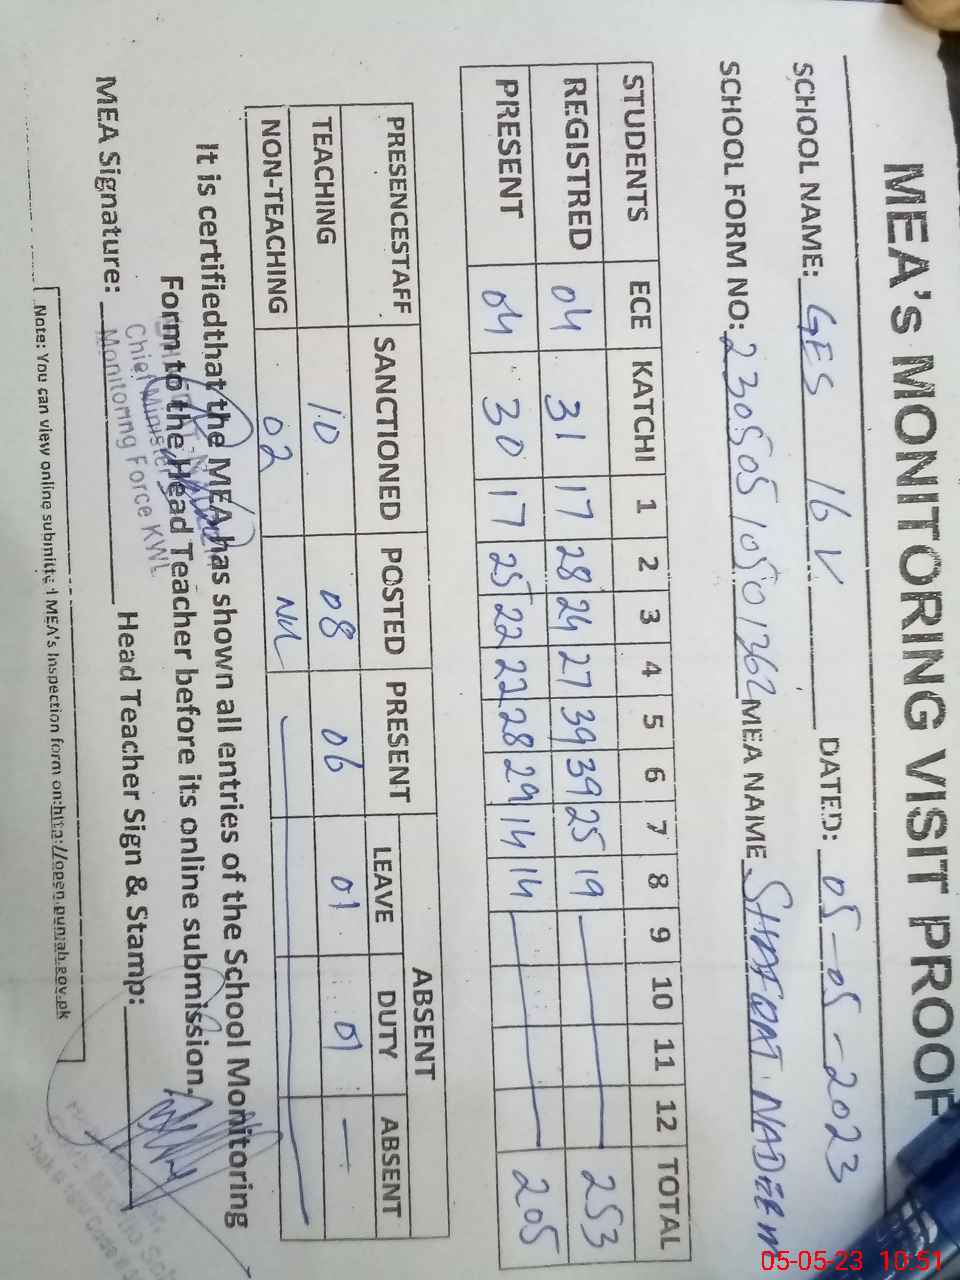 MEA's MONITORING VISIT PROOF
SCHOOL NAME: GES 16 V DATED: 05-05-2023
SCHOOL FORM NO: 23050510501362 MEA NAME SHAFQAT NADEEM
STUDENTS ECE KATCHI 1 2 3 4 5 6 7 8 9 10 11 12 TOTAL
REGISTRED 04 31 17 28 24 27 39 39 25 19 253
PRESENT 04 30 17 25 22 22 28 29 14 14 205
PRESENCESTAFF SANCTIONED POSTED PRESENT ABSENT
LEAVE DUTY ABSENT
TEACHING 10 08 06 01 01 —
NON-TEACHING 02 Nil
It is certifiedthat the MEA has shown all entries of the School Monitoring
Form to the Head Teacher before its online submission.
Chief Minister
Monitoring Force KWL
MEA Signature: Head Teacher Sign & Stamp:
Note: You can view online submitted MEA's Inspection form on:http://open.punjab.gov.pk
05-05-23 10:51